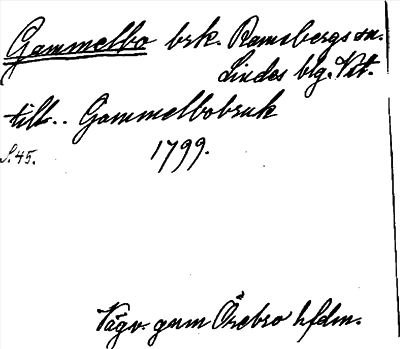 Gammelbo brk. Ramsbergs sn.
Lindes blg. Vst.
till.. Gammelbobruk
S. 45. 1799.
Vägv. gnm Örebro hfdm.